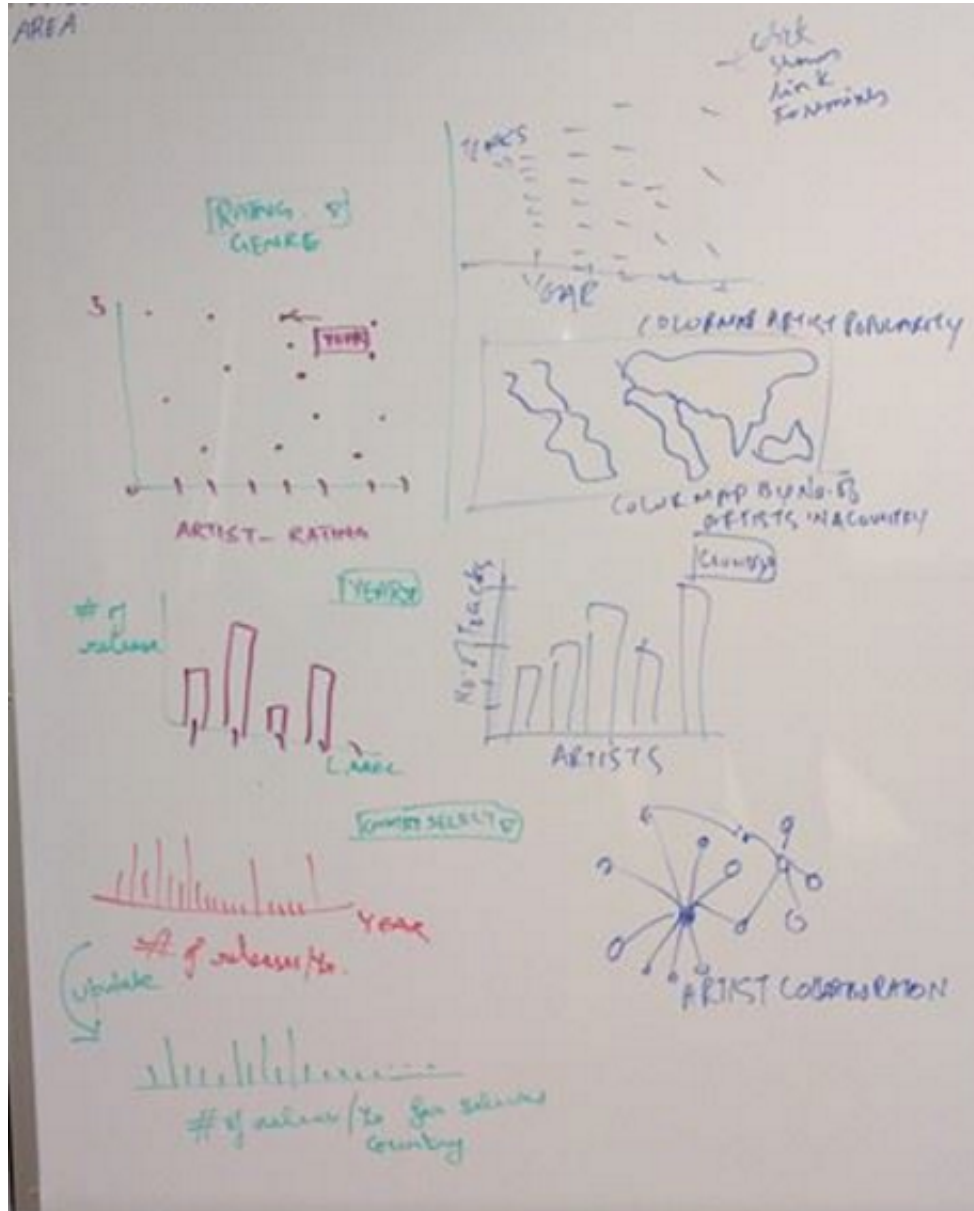 AREA
click
shows
link
to remixes
RATING &
GENRE
YEAR
5
YEAR
ARTIST - RATING
COLORMAP ARTIST POPULARITY
COLOR MAP BY NO. OF
ARTISTS IN A COUNTRY
# of
release
YEAR
LABEL
No. of Tracks
COUNTRY
ARTISTS
SELECT
YEAR
# of releases/Yr.
update
# of releases/Yr for
Country
ARTIST COLLABORATION